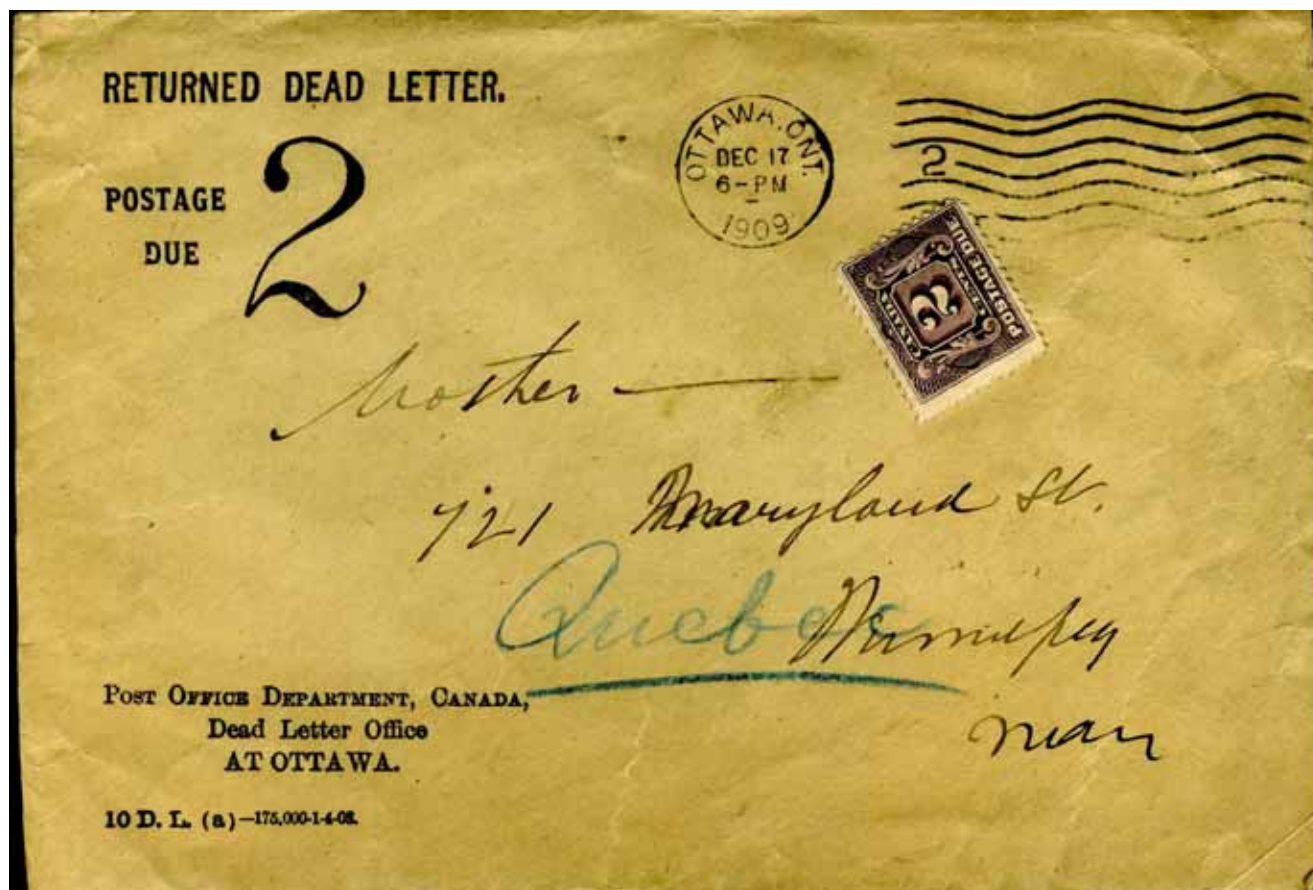 RETURNED DEAD LETTER.
POSTAGE
DUE
2
OTTAWA, ONT.
DEC 17
6-PM
1909
2
CANADA
2
CENTS
POSTAGE DUE
Mother
721 Maryland St.
Quebec
Winnipeg
Man
POST OFFICE DEPARTMENT, CANADA,
Dead Letter Office
AT OTTAWA.
10 D. L. (a)—175,000-1-4-08.